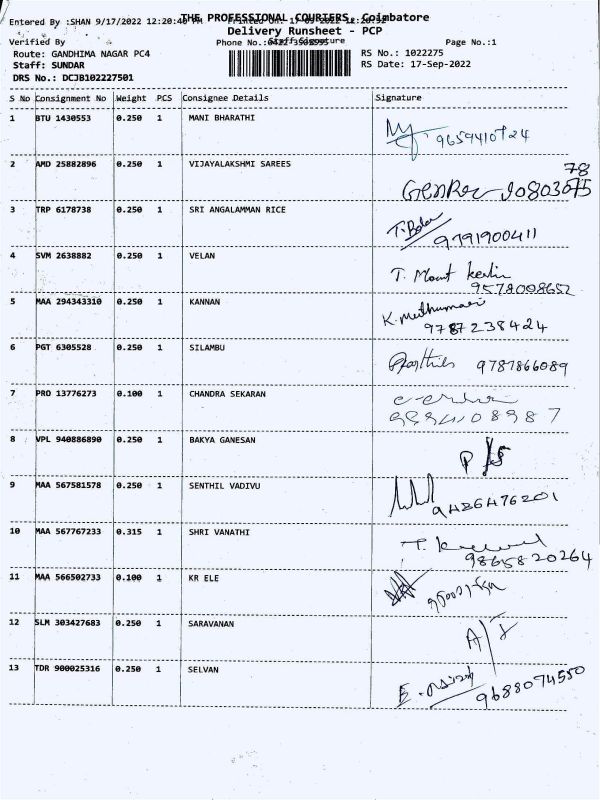 THE PROFESSIONAL COURIERS, Coimbatore
Entered By :SHAN 9/17/2022 12:20:4 PM Printed On: 17-09-2022 12:20:52
Delivery Runsheet - PCP
Verified By Staff Signature
Phone No.: Page No.:1
Route: GANDHIMA NAGAR PC4 RS No.: 1022275
Staff: SUNDAR RS Date: 17-Sep-2022
DRS No.: DCJB102227501
S No Consignment No Weight PCS Consignee Details Signature
1 BTU 1430553 0.250 1 MANI BHARATHI
9659410724
2 AMD 25882896 0.250 1 VIJAYALAKSHMI SAREES
78
3 TRP 6178738 0.250 1 SRI ANGALAMMAN RICE
9791900411
4 SVM 2638882 0.250 1 VELAN
T. Mount
9578008652
5 MAA 294343310 0.250 1 KANNAN
K. Muthumari
9787238424
6 PGT 6305528 0.250 1 SILAMBU
9787866089
7 PRO 13776273 0.100 1 CHANDRA SEKARAN
9994108987
8 VPL 940886890 0.250 1 BAKYA GANESAN
9 MAA 567581578 0.250 1 SENTHIL VADIVU
9426476201
10 MAA 567767233 0.315 1 SHRI VANATHI
9865820264
11 MAA 566502733 0.100 1 KR ELE
12 SLM 303427683 0.250 1 SARAVANAN
13 TDR 900025316 0.250 1 SELVAN
9688074550